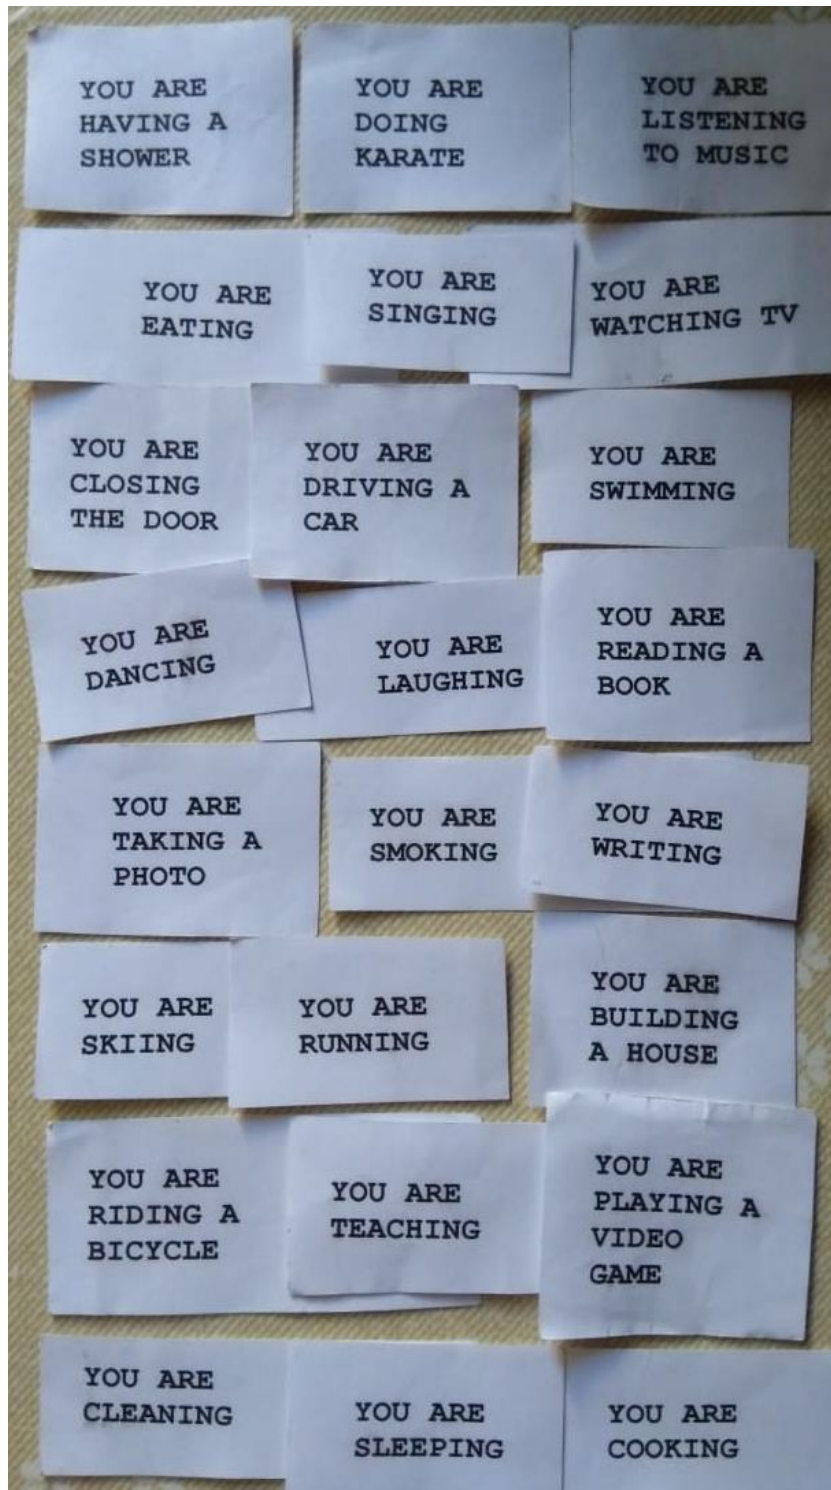 YOU ARE
HAVING A
SHOWER
YOU ARE
DOING
KARATE
YOU ARE
LISTENING
TO MUSIC
YOU ARE
EATING
YOU ARE
SINGING
YOU ARE
WATCHING TV
YOU ARE
CLOSING
THE DOOR
YOU ARE
DRIVING A
CAR
YOU ARE
SWIMMING
YOU ARE
DANCING
YOU ARE
LAUGHING
YOU ARE
READING A
BOOK
YOU ARE
TAKING A
PHOTO
YOU ARE
SMOKING
YOU ARE
WRITING
YOU ARE
SKIING
YOU ARE
RUNNING
YOU ARE
BUILDING
A HOUSE
YOU ARE
RIDING A
BICYCLE
YOU ARE
TEACHING
YOU ARE
PLAYING A
VIDEO
GAME
YOU ARE
CLEANING
YOU ARE
SLEEPING
YOU ARE
COOKING